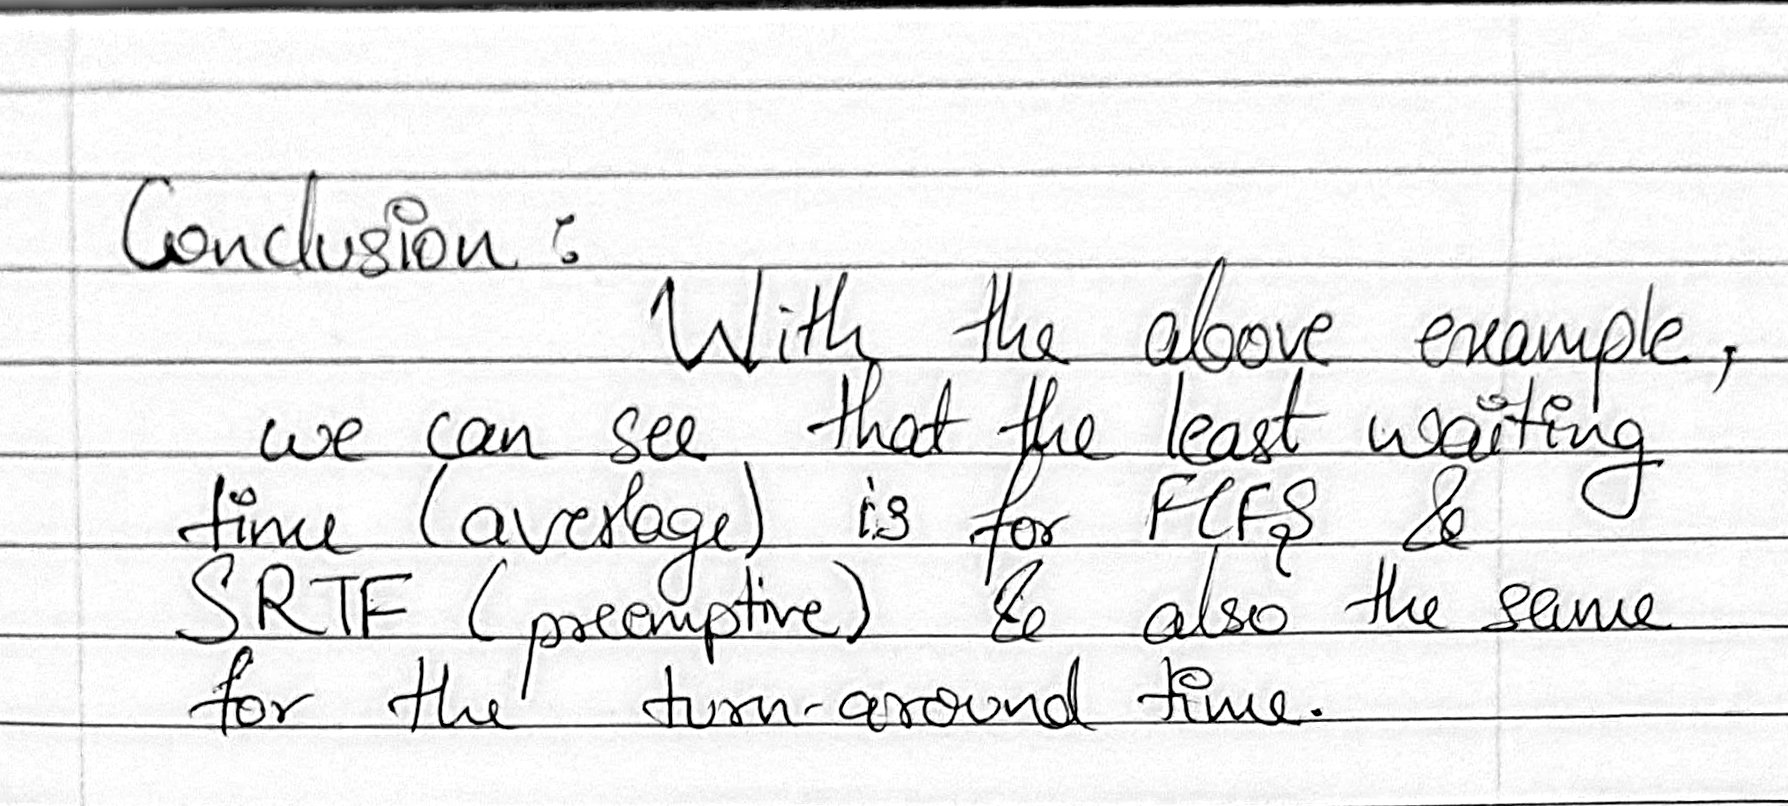 Conclusion :
With the above example,
we can see that the least waiting
time (average) is for FCFS &
SRTF (preemptive) & also the same
for the turn-around time.